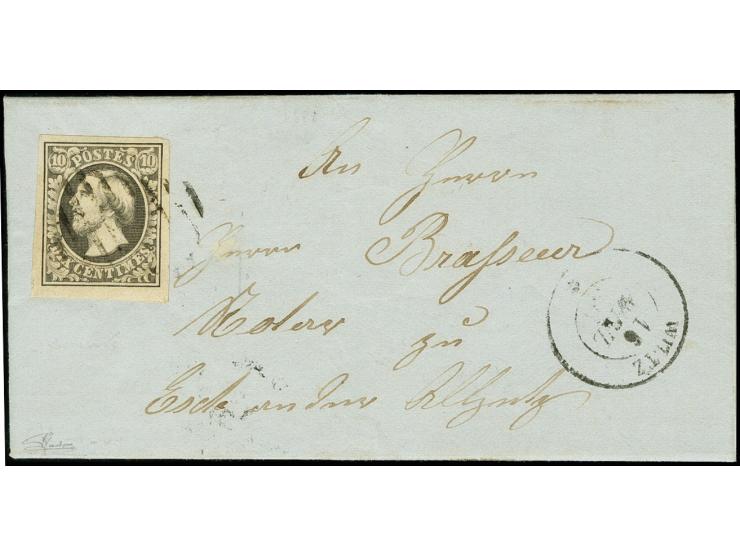 10 POSTES 10
CENTIMES
An Herrn
Herrn Brasseur
Notar zu
Esch an der Alzette
WILTZ
16